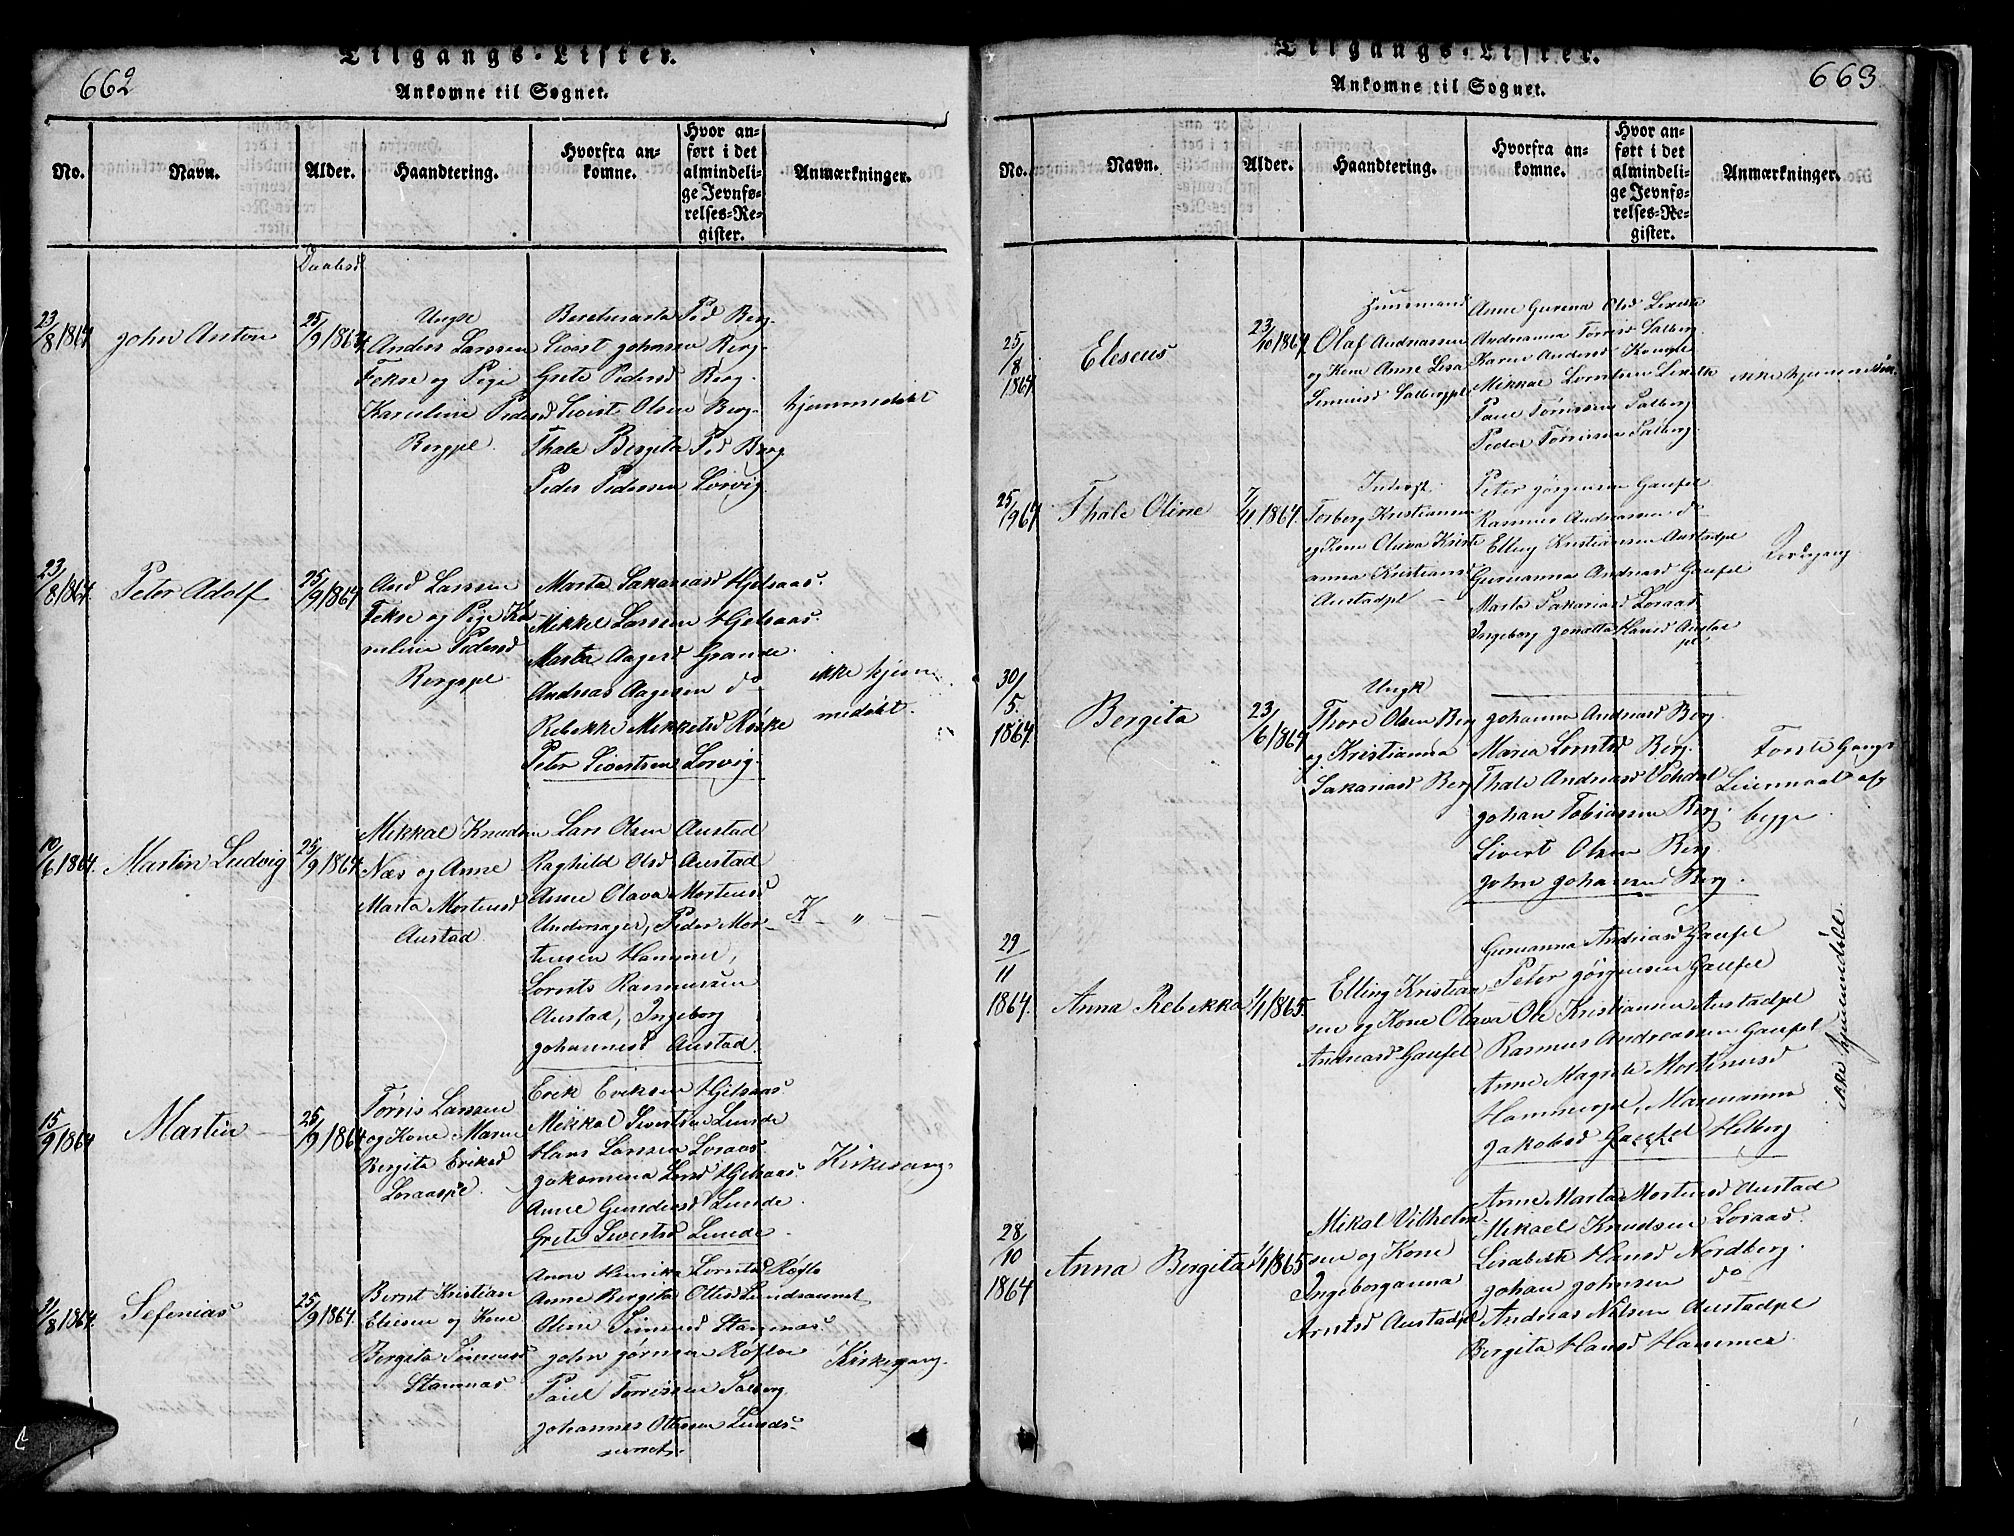 662
Tilgangs-Lister.
Ankomne til Sognet.
No.
Navn.
Alder.
Haandtering.
Hvorfra an-
komne.
Hvor an-
ført i det
almindeli-
ge Jevnfø-
relses-Re-
gister.
Anmærkninger.
Daabsd
23/8 1864
John Anton
25/9 1864
Ungk
Anders Larssen
Fekse og Pige
Karoline Pedersd
Bergpl.
Berg.
Sivert Johansen Berg.
Grete Pedersd Berg.
Sivert Olsen Berg.
Thale Bergita Pd Berg
Peder Pedersen Lorvig.
hjemmedøbt
23/8 1864.
Peter Adolf
25/9 1864
And Larssen
Fekse og Pige Ka-
roline Pedersd
Bergspl.
Marta Sakariasd Hjelsaas.
Mikkel Larssen Hjelsaas.
Marta Aagesd Grande.
Andreas Aagesen do
Rebekke Mikkelsd Røske
Peter Sivertsen Lorvig.
ikke hjem
medøbt.
10/6 1864.
Martin Ludvig
25/9 1864
Mikkal Knudsen
Næs og Anne
Marta Mortensd
Austad
Lars Olsen Austad
Raghild Olsd Austad
Anne Olava Mortensd
Andersager, Peder Mor-
tensen Hammer,
Lornts Rasmussen
Austad, Ingeborg
Johannesd Austad.
K — " —
15/9 1864
Martin
25/9 1864
Tørris Larssen
og Kone Maren
Bergita Eriksd
Loraaspl.
Erik Eriksen Hjelsaas.
Mikkal Sivertsen Lunde
Hans Larssen Loraas.
Jakomina Larsd Hjelsaas.
Anne Gundersd Lunde.
Grete Sivertsd Lunde.
Kirkegang.
21/8 1864.
Sefenias
25/9 1864.
Bernt Kristian
Eliesen og Kone
Bergita Simensd
Stamnas.
Anne Henrika Lorntsd Røflo
Anne Bergita Ottesd Lundsaunet
Oline Simensd Stamnas.
John Jørnsen Røfloe
Paul Tørrissen Salberg
Johannes Ottesen Lunds-
aunet.
Kirkegang.
663.
Tilgangs-Lister.
Ankomne til Sognet.
No.
Navn.
Alder.
Haandtering.
Hvorfra an-
komne.
Hvor an-
ført i det
almindeli-
ge Jevnfø-
relses-Re-
gister.
Anmærkninger.
25/8 1864
Eleseus
23/10 1864.
Huusmand
Olaf Andreassen
og Kone Anne Lisa
Simensd Salbergpl
Anne Gurena Olsd
Andrianna Tørrisd Salberg
Karen Andersd
Mikkal Lorntsen
Paul Tørrissen Salberg
Peder Tørrissen Salberg.
ikke hjemmedøbt.
25/9 64
Thale Oline
7/11 1864.
Inderst.
Torberg Kristiansen
og Kone Olava Kristi
anna Kristiansd
Austadpl —
Peter Jørgensen Gausel
Rasmus Andreassen do
Elling Kristiansen Austadpl
Gurianna Andreasd Gausel
Marta Sakariasd Loraas
Ingeborg Jonetta Hansd Austad
pl.
Kirkegang
30/5 1864.
Bergita
23/6 1864
Ungk
Thore Olsen Berg
og Kristianna
Sakariasd Berg
Johanna Andreasd Berg.
Maria Lorntsd Berg.
Thale Andreasd Vohdal
Johan Tobiassen Berg.
Sivert Olsen Berg.
John Johansen Berg.
Første Gangs
Leiermaal af
begge.
29/11 1864.
Anna Rebekka
1/1 1865.
Elling Kristian
sen og Kone Olava
Andreasd Gausel
Gurianna Andreasd Gausel
Peter Jørgensen Gausel
Ole Kristiansen Austadpl
Rasmus Andreassen Gausel
Anne Magrete Mortensd
Hammerpl, Marenanna
Jakobsd Gausel Helberg
ikke hjemmedøbt.
28/10 1864
Anna Bergita
1/1 1865
Mikal Vilhelm
sen og Kone
Ingeborganna
Arntsd Austadpl
Anne Marta Mortensd Austad
Mikael Knudsen Loraas.
Lisabeth Hansd Nordberg.
Johan Johnsen do
Andreas Nilsen Austadpl
Bergita Hansd Hammer.